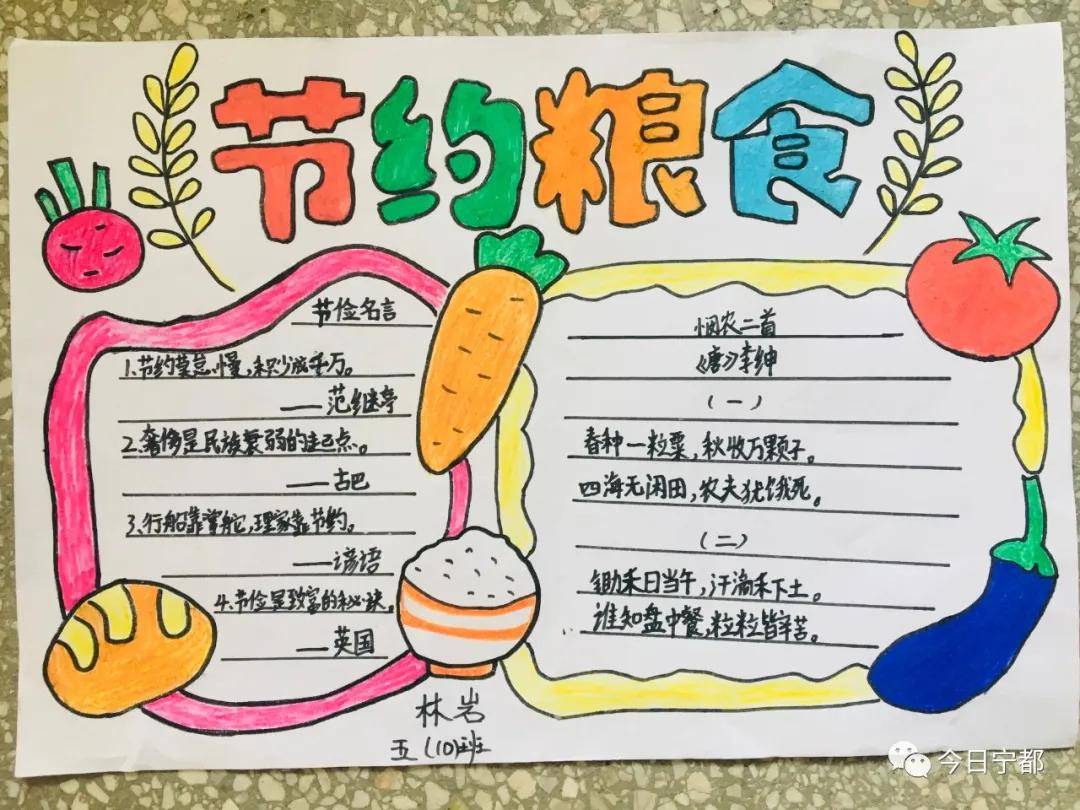 节约粮食
节俭名言
1、节约莫怠慢,积少成千万。
——范继亭
2、奢侈是民族衰弱的起点。
——古巴
3、行船靠掌舵,理家靠节约。
——谚语
4、节俭是致富的秘诀。
——英国
悯农二首
《唐》李绅
(一)
春种一粒粟,秋收万颗子。
四海无闲田,农夫犹饿死。
(二)
锄禾日当午,汗滴禾下土。
谁知盘中餐,粒粒皆辛苦。
林岩
五(10)班
今日宁都